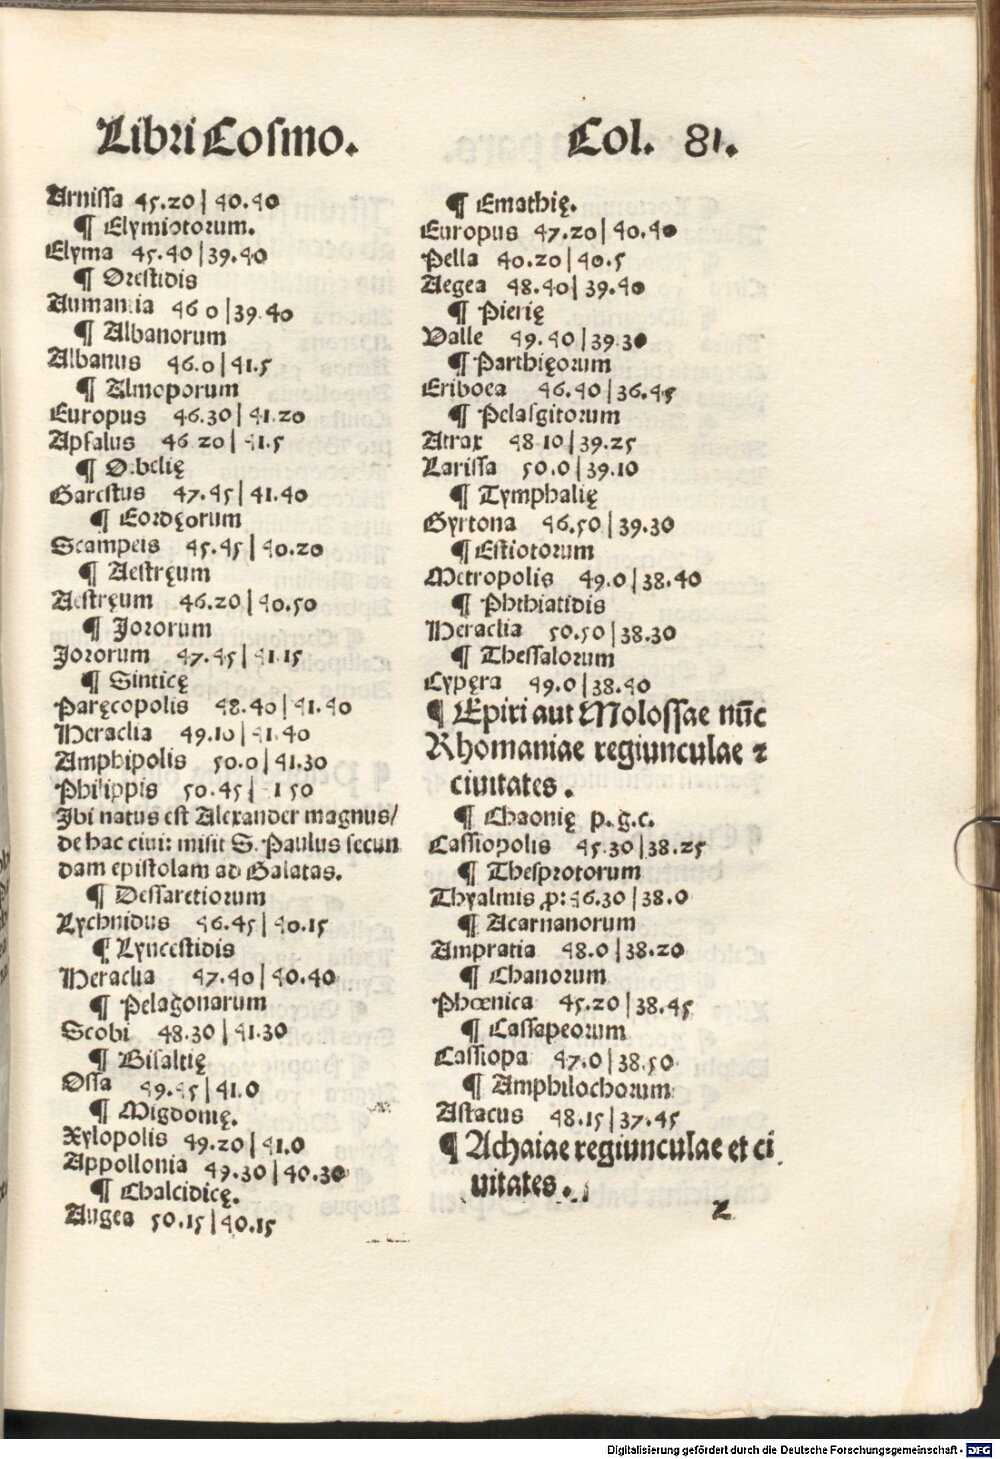 Libri Cosmo. Col. 81.
Arnissa 45.20 | 40.40
¶ Elymiotorum.
Elyma 45.40 | 39.40
¶ Orestidis
Aumantia 46 0 | 39.40
¶ Albanorum
Albanus 46.0 | 41.5
¶ Almoporum
Europus 46.30 | 41.20
Apsalus 46 20 | 41.5
¶ Orbelię
Garestus 47.45 | 41.40
¶ Eordęorum
Scampeis 45.45 | 40.20
¶ Aestręum
Aestręum 46.20 | 40.50
¶ Jororum
Jororum 47.45 | 41 15
¶ Sinticę
Paręcopolis 48.40 | 41.40
Heraclia 49.10 | 41.40
Amphipolis 50.0 | 41.30
Philippis 50.45 | 41 50
Ibi natus est Alexander magnus/
de hac ciui: misit S. Paulus secun
dam epistolam ad Galatas.
¶ Dessaretiorum
Lychnidus 46.45 | 40.15
¶ Lyncestidis
Heraclia 47.40 | 40.40
¶ Pelagonarum
Scobi 48.30 | 41.30
¶ Bisaltię
Ossa 49.45 | 41.0
¶ Migdonię.
Xylopolis 49.20 | 41.0
Appollonia 49.30 | 40.30
¶ Chalcidicę.
Augea 50.15 | 40.15
¶ Emathię.
Europus 47.20 | 40.40
Pella 40.20 | 40.5
Aegea 48.40 | 39.40
¶ Pierię
Valle 49.40 | 39 30
¶ Parthięorum
Eriboea 46.40 | 36.45
¶ Pelasgitorum
Atrax 48 10 | 39.25
Larissa 50.0 | 39.10
¶ Tymphalię
Gyrtona 46.50 | 39.30
¶ Estiotorum
Metropolis 49.0 | 38.40
¶ Phthiatidis
Heraclia 50.50 | 38.30
¶ Thessalorum
Cypęra 49.0 | 38.40
¶ Epiri aut Molossae nũc
Rhomaniae regiunculae ⁊
ciuitates.
¶ Chaonię p.g.c.
Cassiopolis 45.30 | 38.25
¶ Thesprotorum
Thyalmis ꝓ: 46.30 | 38.0
¶ Acarnanorum
Ampratia 48.0 | 38.20
¶ Chanorum
Phœnica 45.20 | 38.45
¶ Cassapeorum
Cassiopa 47.0 | 38.50
¶ Amphilochorum
Astacus 48.15 | 37.45
¶ Achaiae regiunculae et ci
uitates.
z
Digitalisierung gefördert durch die Deutsche Forschungsgemeinschaft - DFG